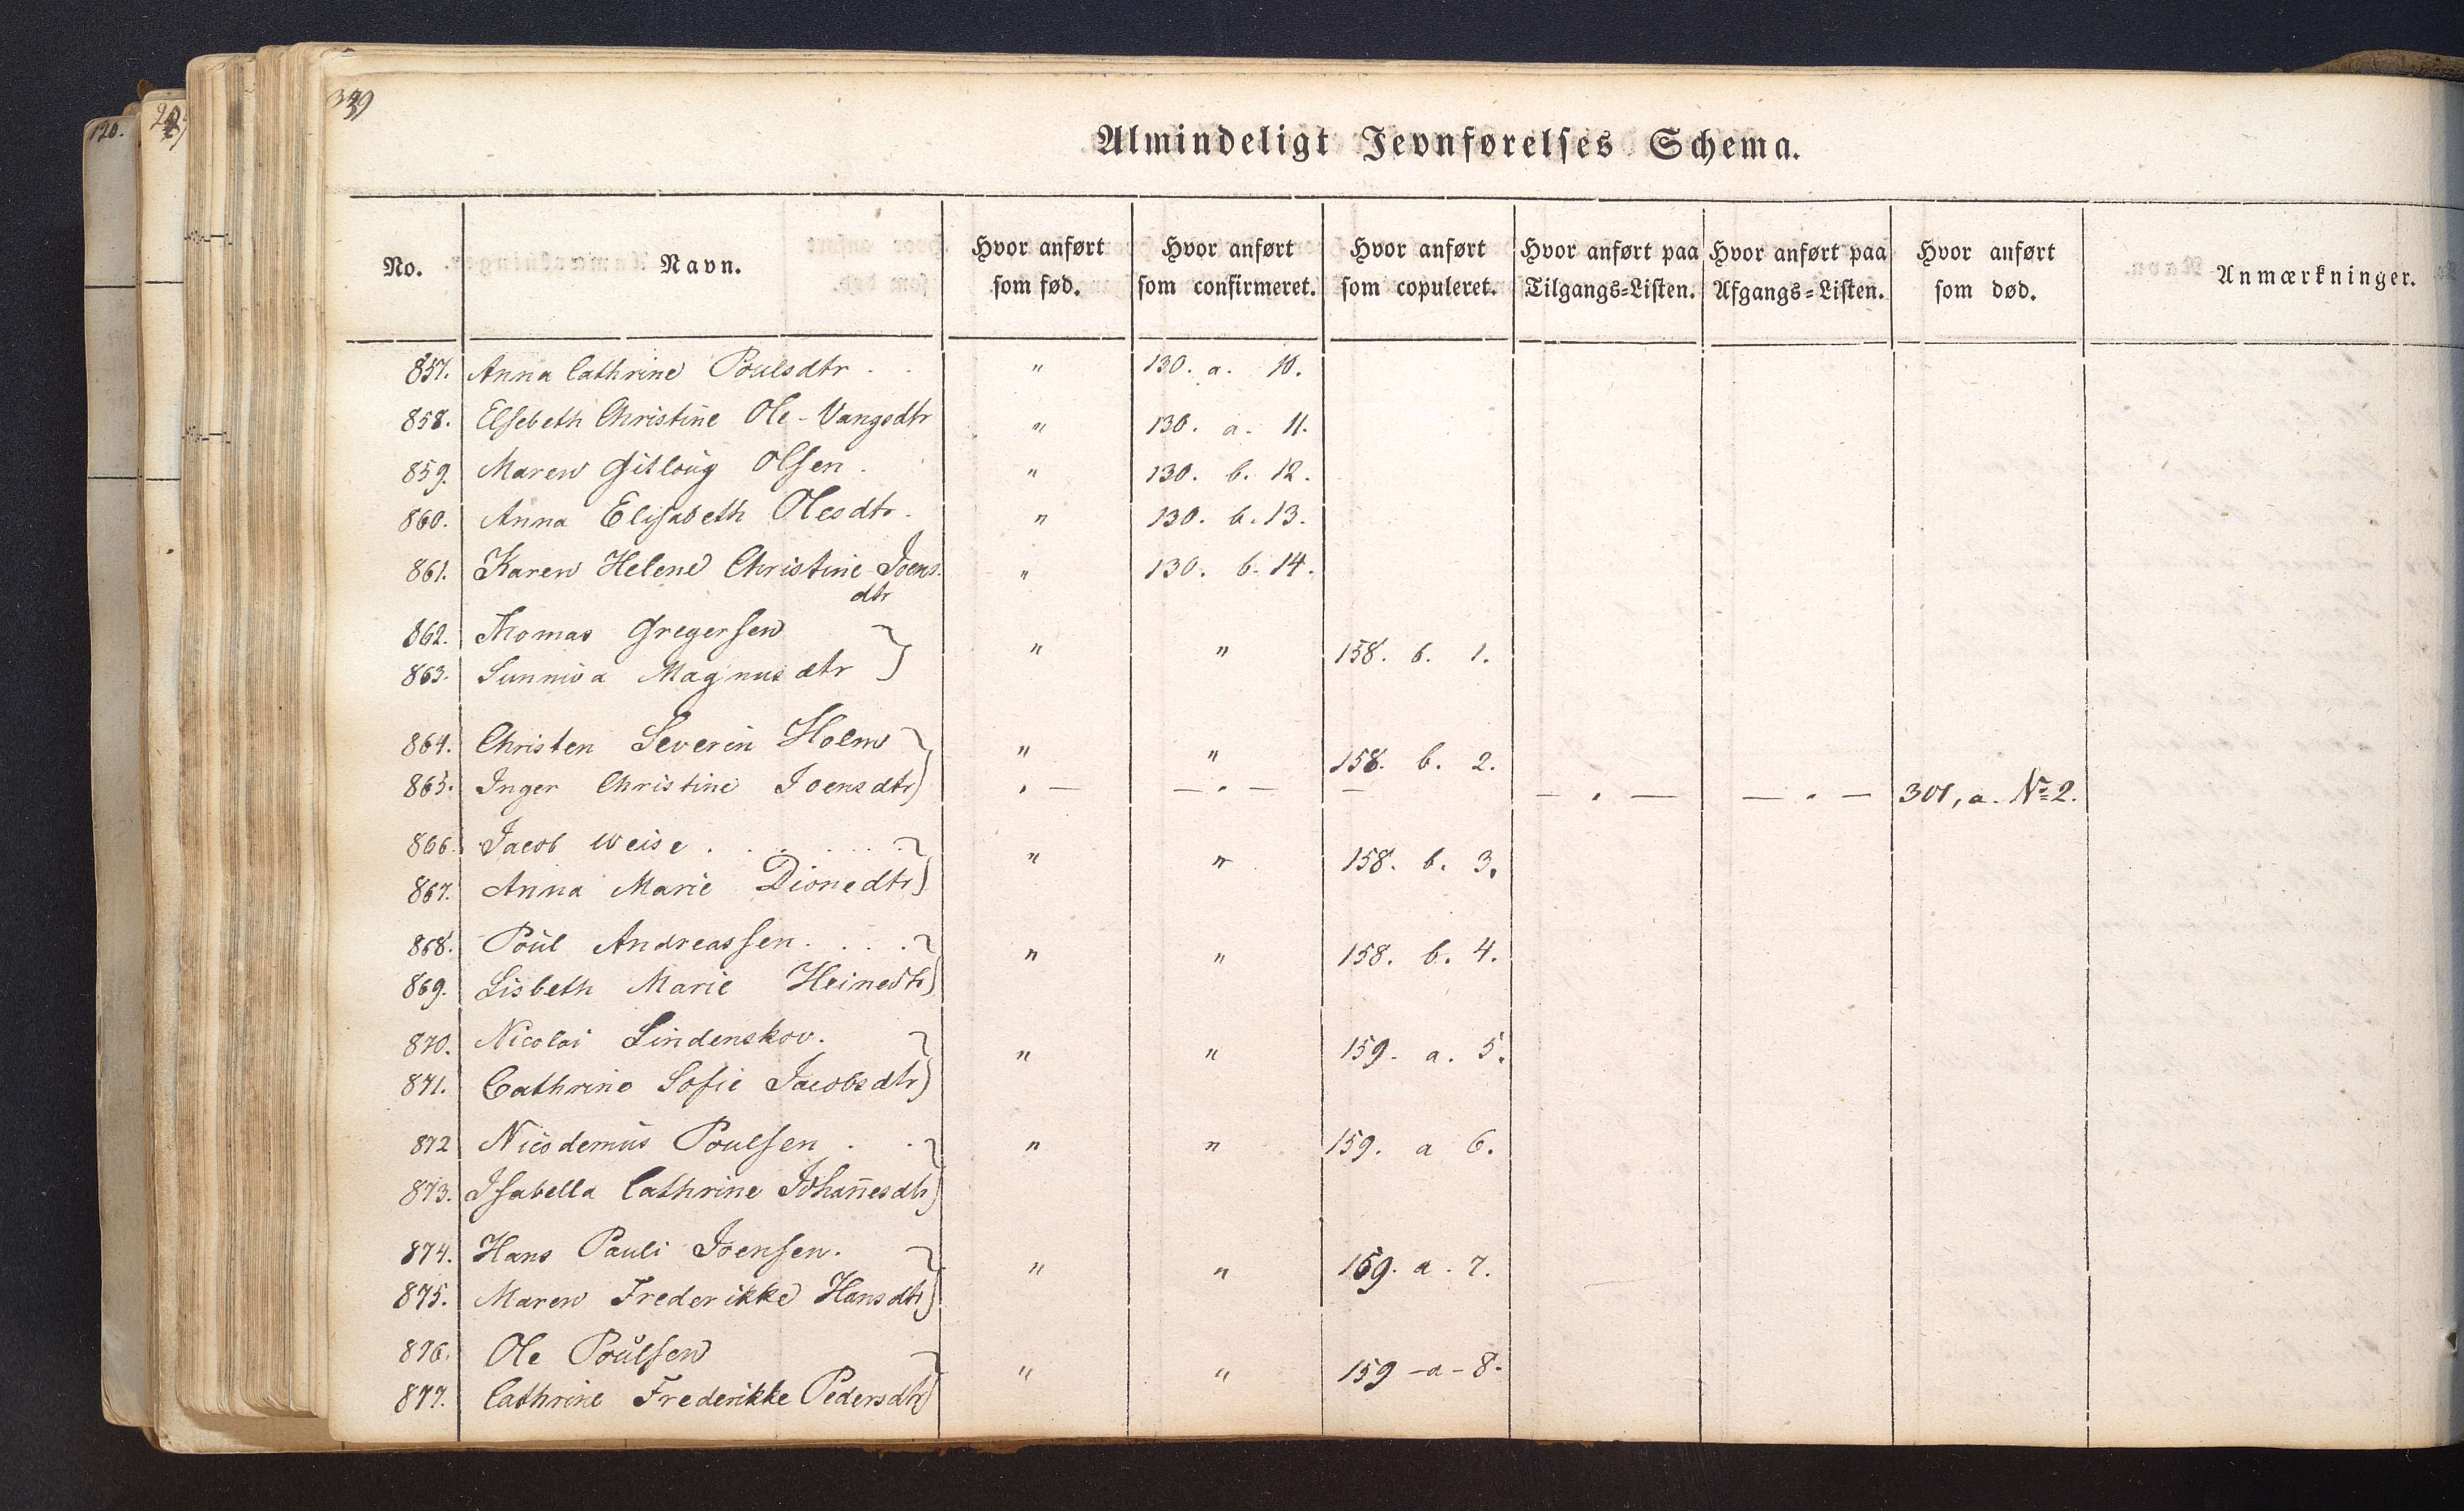 120.
339
Almindeligt Jevnførelses Schema.
No. Navn. Hvor anført som fød. Hvor anført som confirmeret. Hvor anført som copuleret. Hvor anført paa Tilgangs=Listen. Hvor anført paa Afgangs=Listen. Hvor anført som død. Anmærkninger.
857. Anna Cathrine Poulsdtr . . " 130. a. 10.
858. Elsebeth Christine Ole-Vangsdtr " 130. a. 11.
859. Maren Gitloug Olsen . " 130. b. 12.
860. Anna Elisabeth Olesdtr. " 130. b. 13.
861. Karen Helene Christine Joens- " 130. b. 14.
dtr
862. Thomas Gregersen " " 158. b. 1.
863. Sunniva Magnusdtr
864. Christen Severin Holm " " 158. b. 2.
865. Inger Christine Joensdtr . — — . — — — . — — . — 301, a. No 2.
866. Jacob Weise . . . . . . " " 158. b. 3.
867. Anna Marie Dionedtr
868. Poul Andreassen. . . . " " 158. b. 4.
869. Lisbeth Marie Heinedtr
870. Nicolai Lindenskov. " " 159. a. 5.
871. Cathrine Sofie Jacobsdtr
872 Nicodemus Poulsen . . " " 159. a 6.
873. Isabella Cathrine Johan̄esdtr
874. Hans Pauli Joensen. " " 159. a. 7.
875. Maren Frederikke Hansdtr
876. Ole Poulsen " " 159 - a - 8.
877. Cathrine Frederikke Pedersdtr